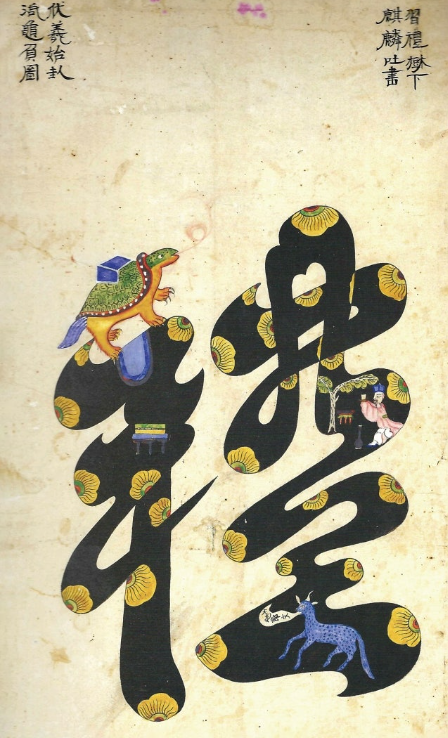 習禮樹下
麒麟吐書
伏羲始卦
龜負圖
禮